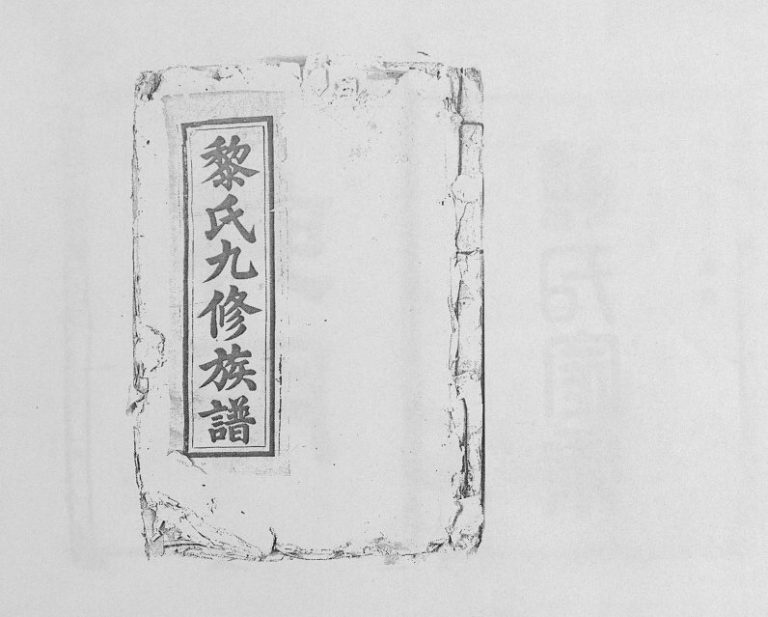 黎氏九修族譜